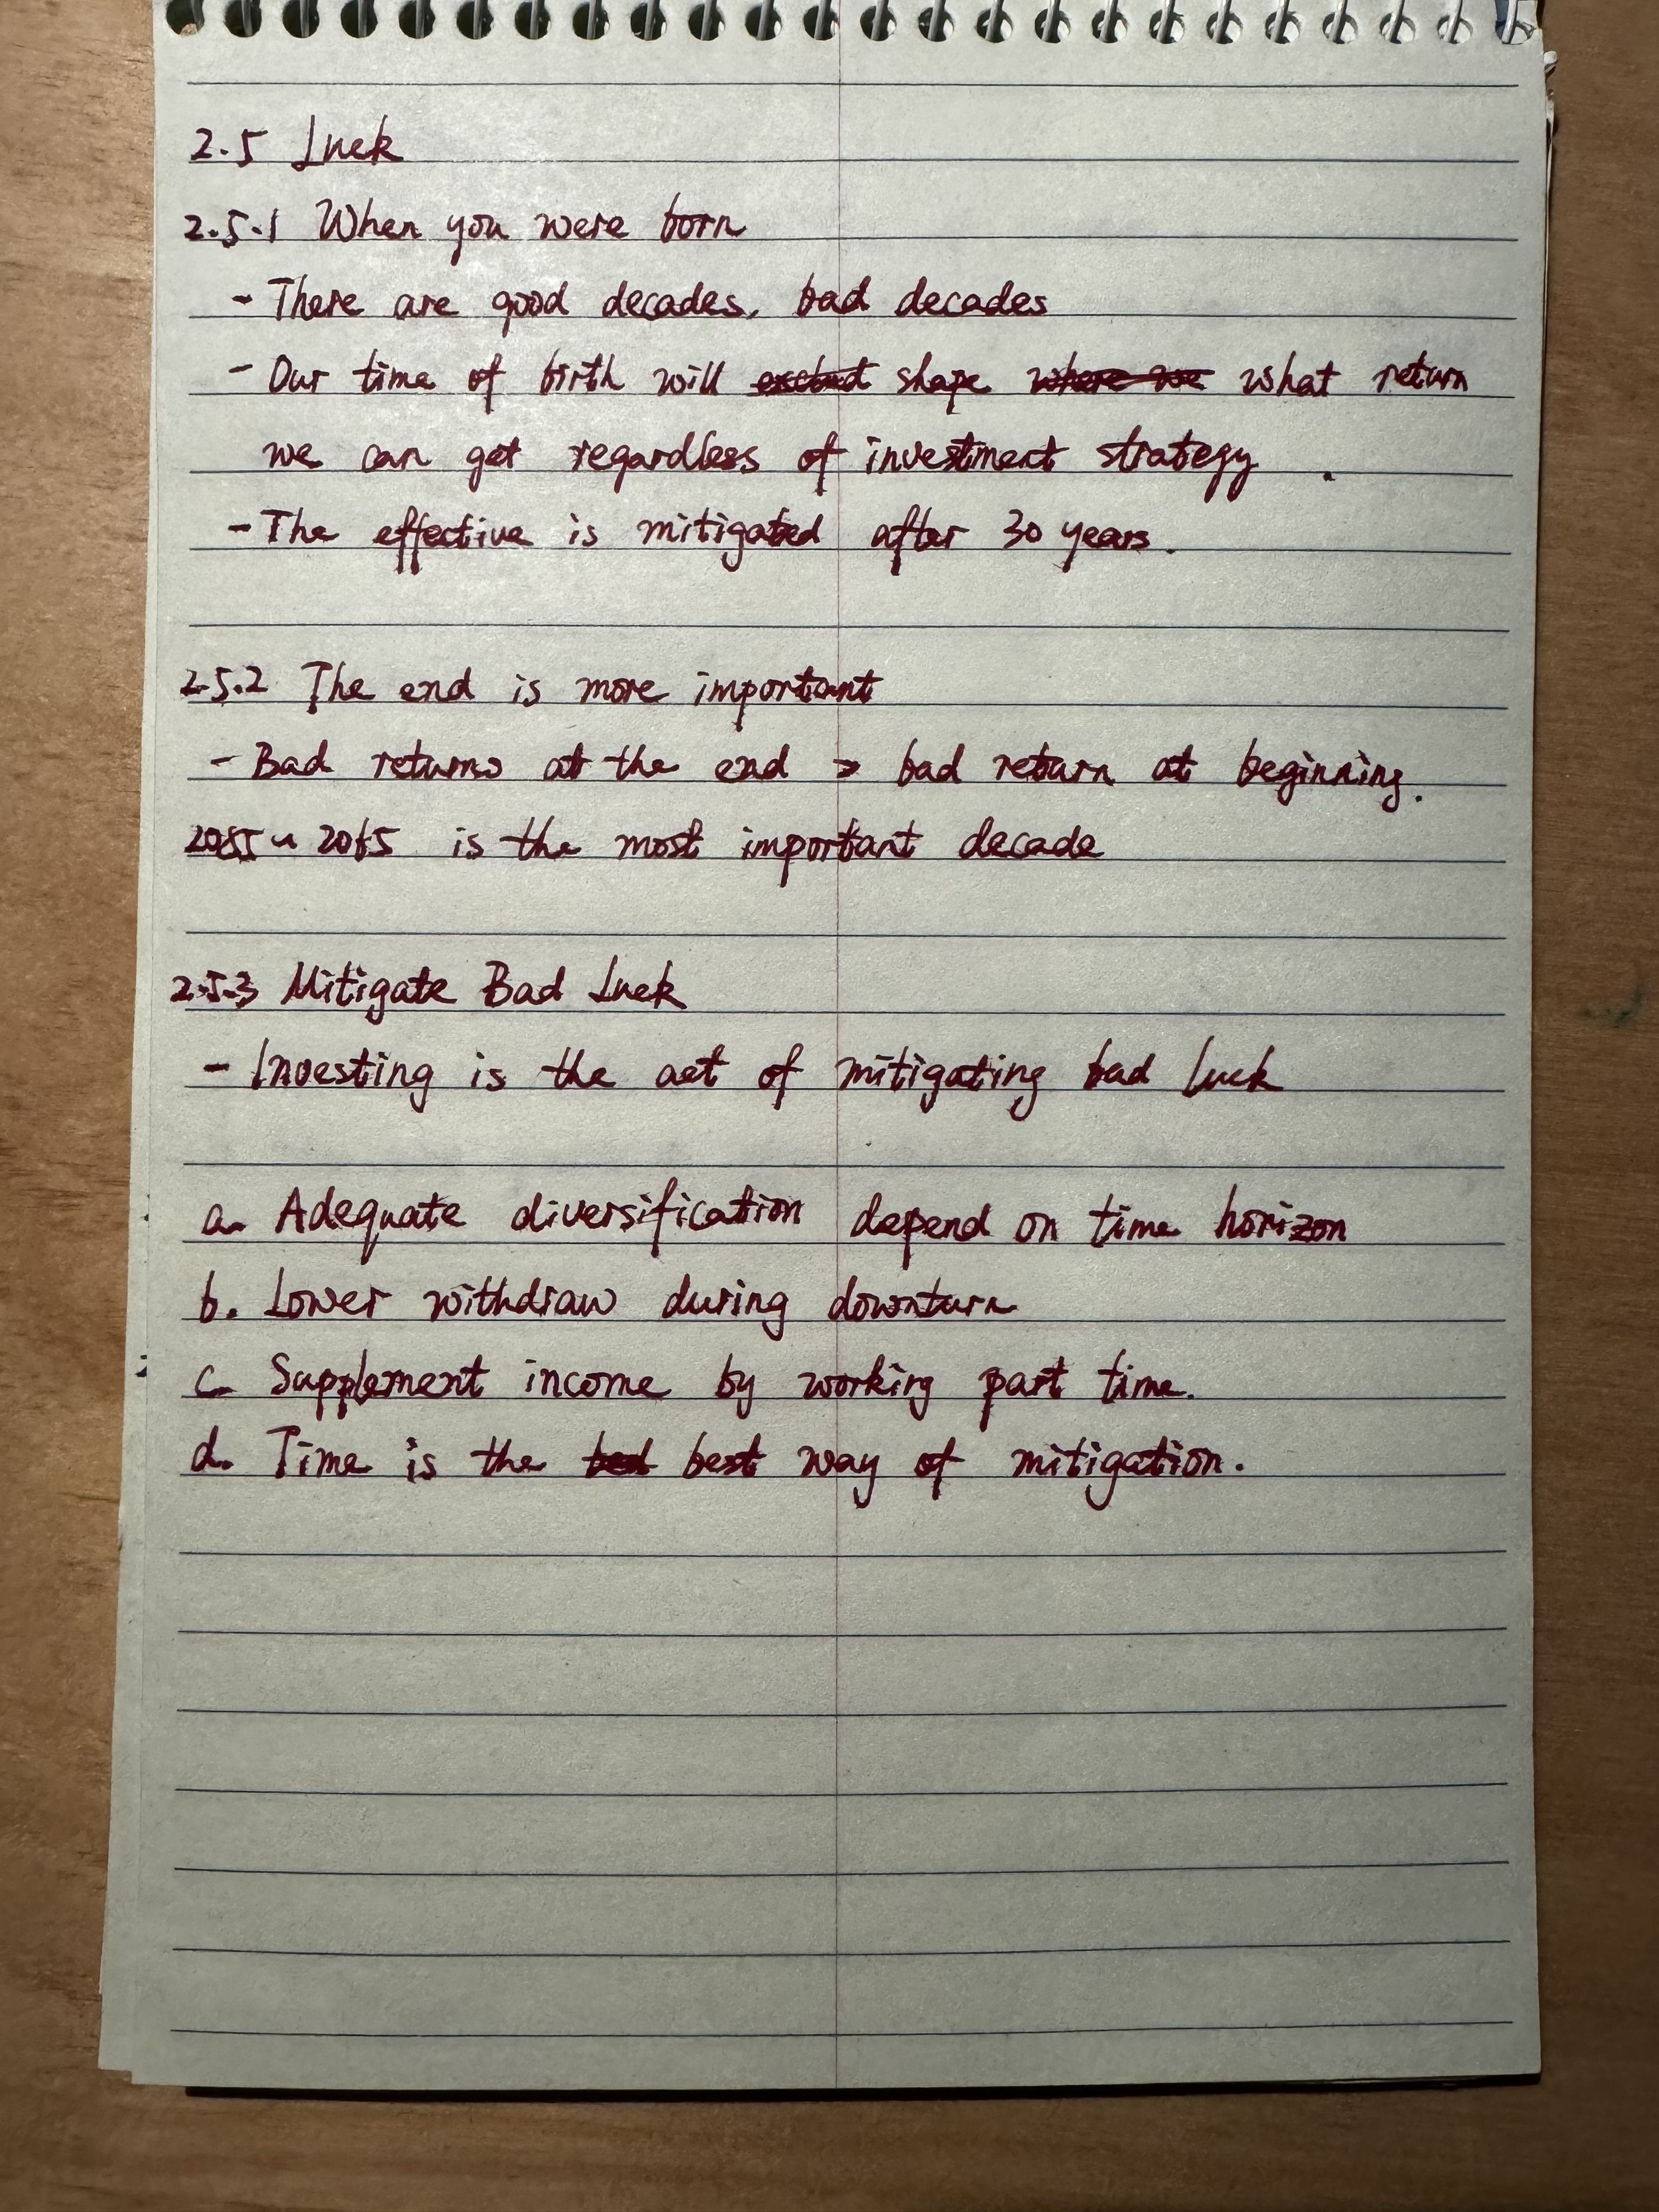 2.5 Luck
2.5.1 When you were born
- There are good decades, bad decades
- Our time of birth will shape where we what return
we can get regardless of investment strategy.
- The effective is mitigated after 30 years.
2.5.2 The end is more important
- Bad returns at the end > bad return at beginning.
2055 ~ 2065 is the most important decade
2.5.3 Mitigate Bad Luck
- Investing is the act of mitigating bad luck
a. Adequate diversification depend on time horizon
b. Lower withdraw during downturn
c. Supplement income by working part time.
d. Time is the best way of mitigation.